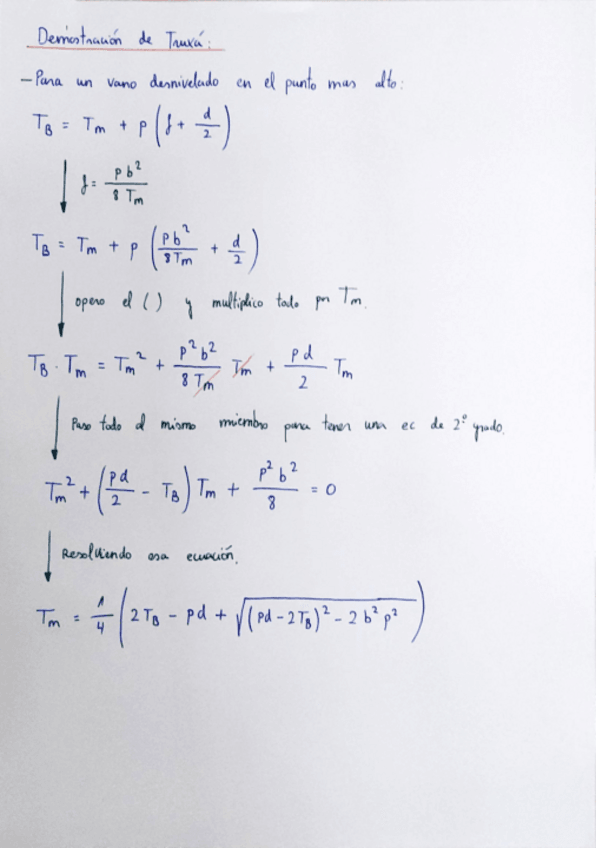 Demostración de Truxá:
- Para un vano desnivelado en el punto mas alto:
T_B = T_m + p (f + d/2)
f = pb²/8T_m
T_B = T_m + p (pb²/8T_m + d/2)
opero el ( ) y multiplico todo por T_m.
T_B · T_m = T_m² + p²b²/8T_m T_m + pd/2 T_m
Paso todo al mismo miembro para tener una ec de 2º grado.
T_m² + (pd/2 - T_B) T_m + p²b²/8 = 0
Resolviendo esa ecuación.
T_m = 1/4 (2T_B - pd + √((pd - 2T_B)² - 2b²p²))